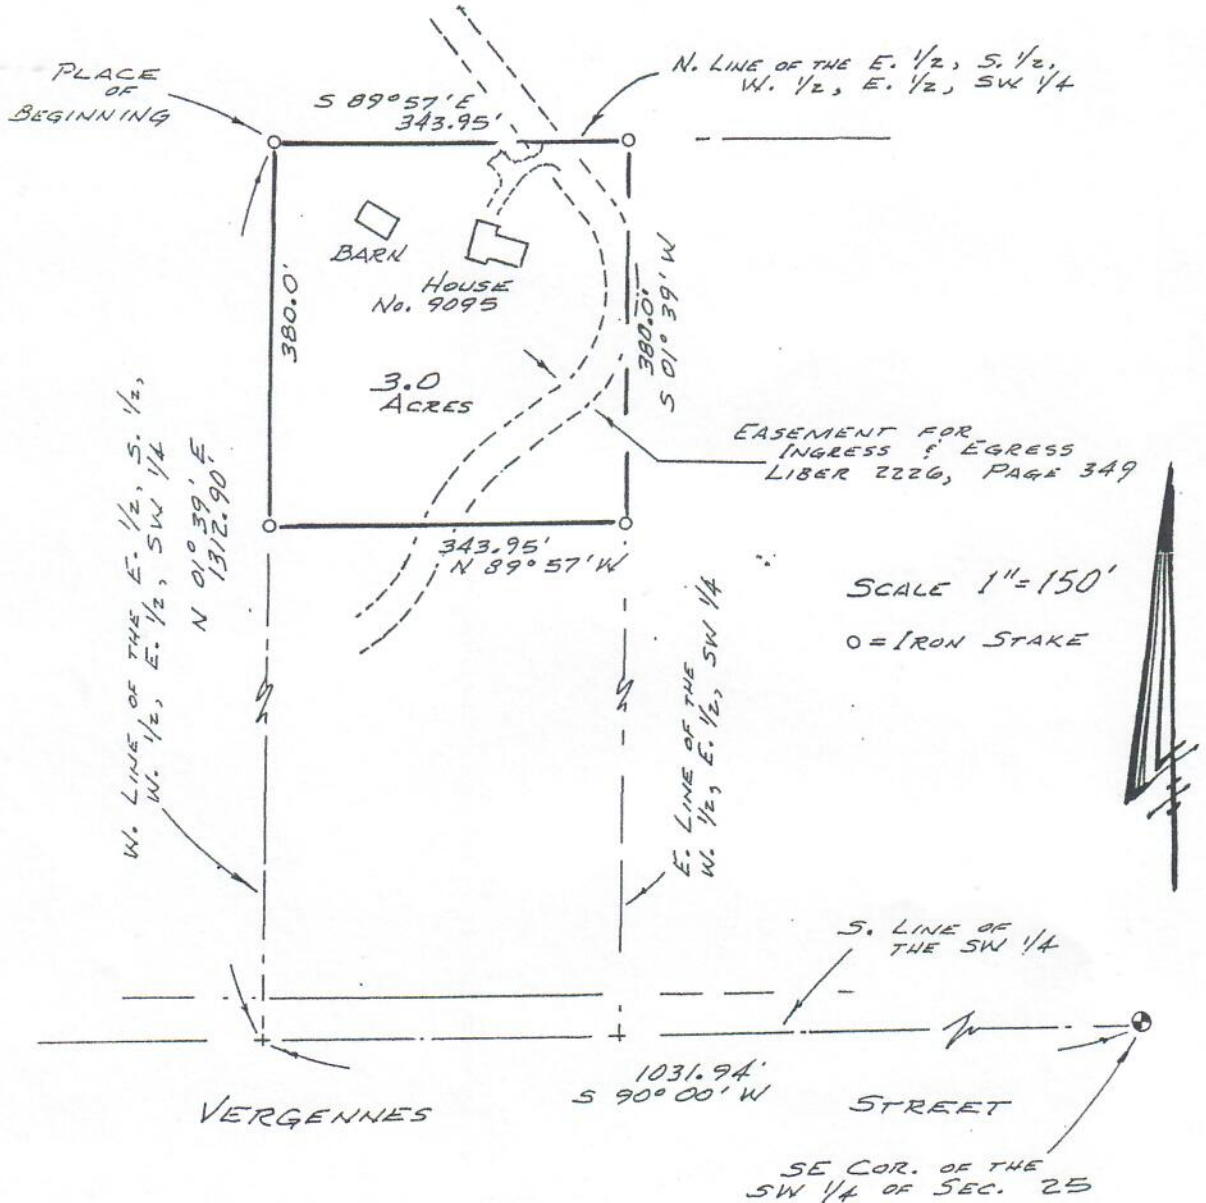 PLACE
OF
BEGINNING
S 89° 57' E
343.95'
N. LINE OF THE E. 1/2, S. 1/2,
W. 1/2, E. 1/2, SW 1/4
BARN
HOUSE
No. 9095
380.0'
380.0'
S 01° 39' W
3.0
ACRES
EASEMENT FOR
INGRESS & EGRESS
LIBER 2226, PAGE 349
W. LINE OF THE E. 1/2, S. 1/2,
W. 1/2, E. 1/2, SW 1/4
N 01° 39' E
1312.90'
343.95'
N 89° 57' W
SCALE 1" = 150'
o = IRON STAKE
E. LINE OF THE
W. 1/2, E. 1/2, SW 1/4
S. LINE OF
THE SW 1/4
1031.94'
S 90° 00' W
VERGENNES STREET
SE COR. OF THE
SW 1/4 OF SEC. 25